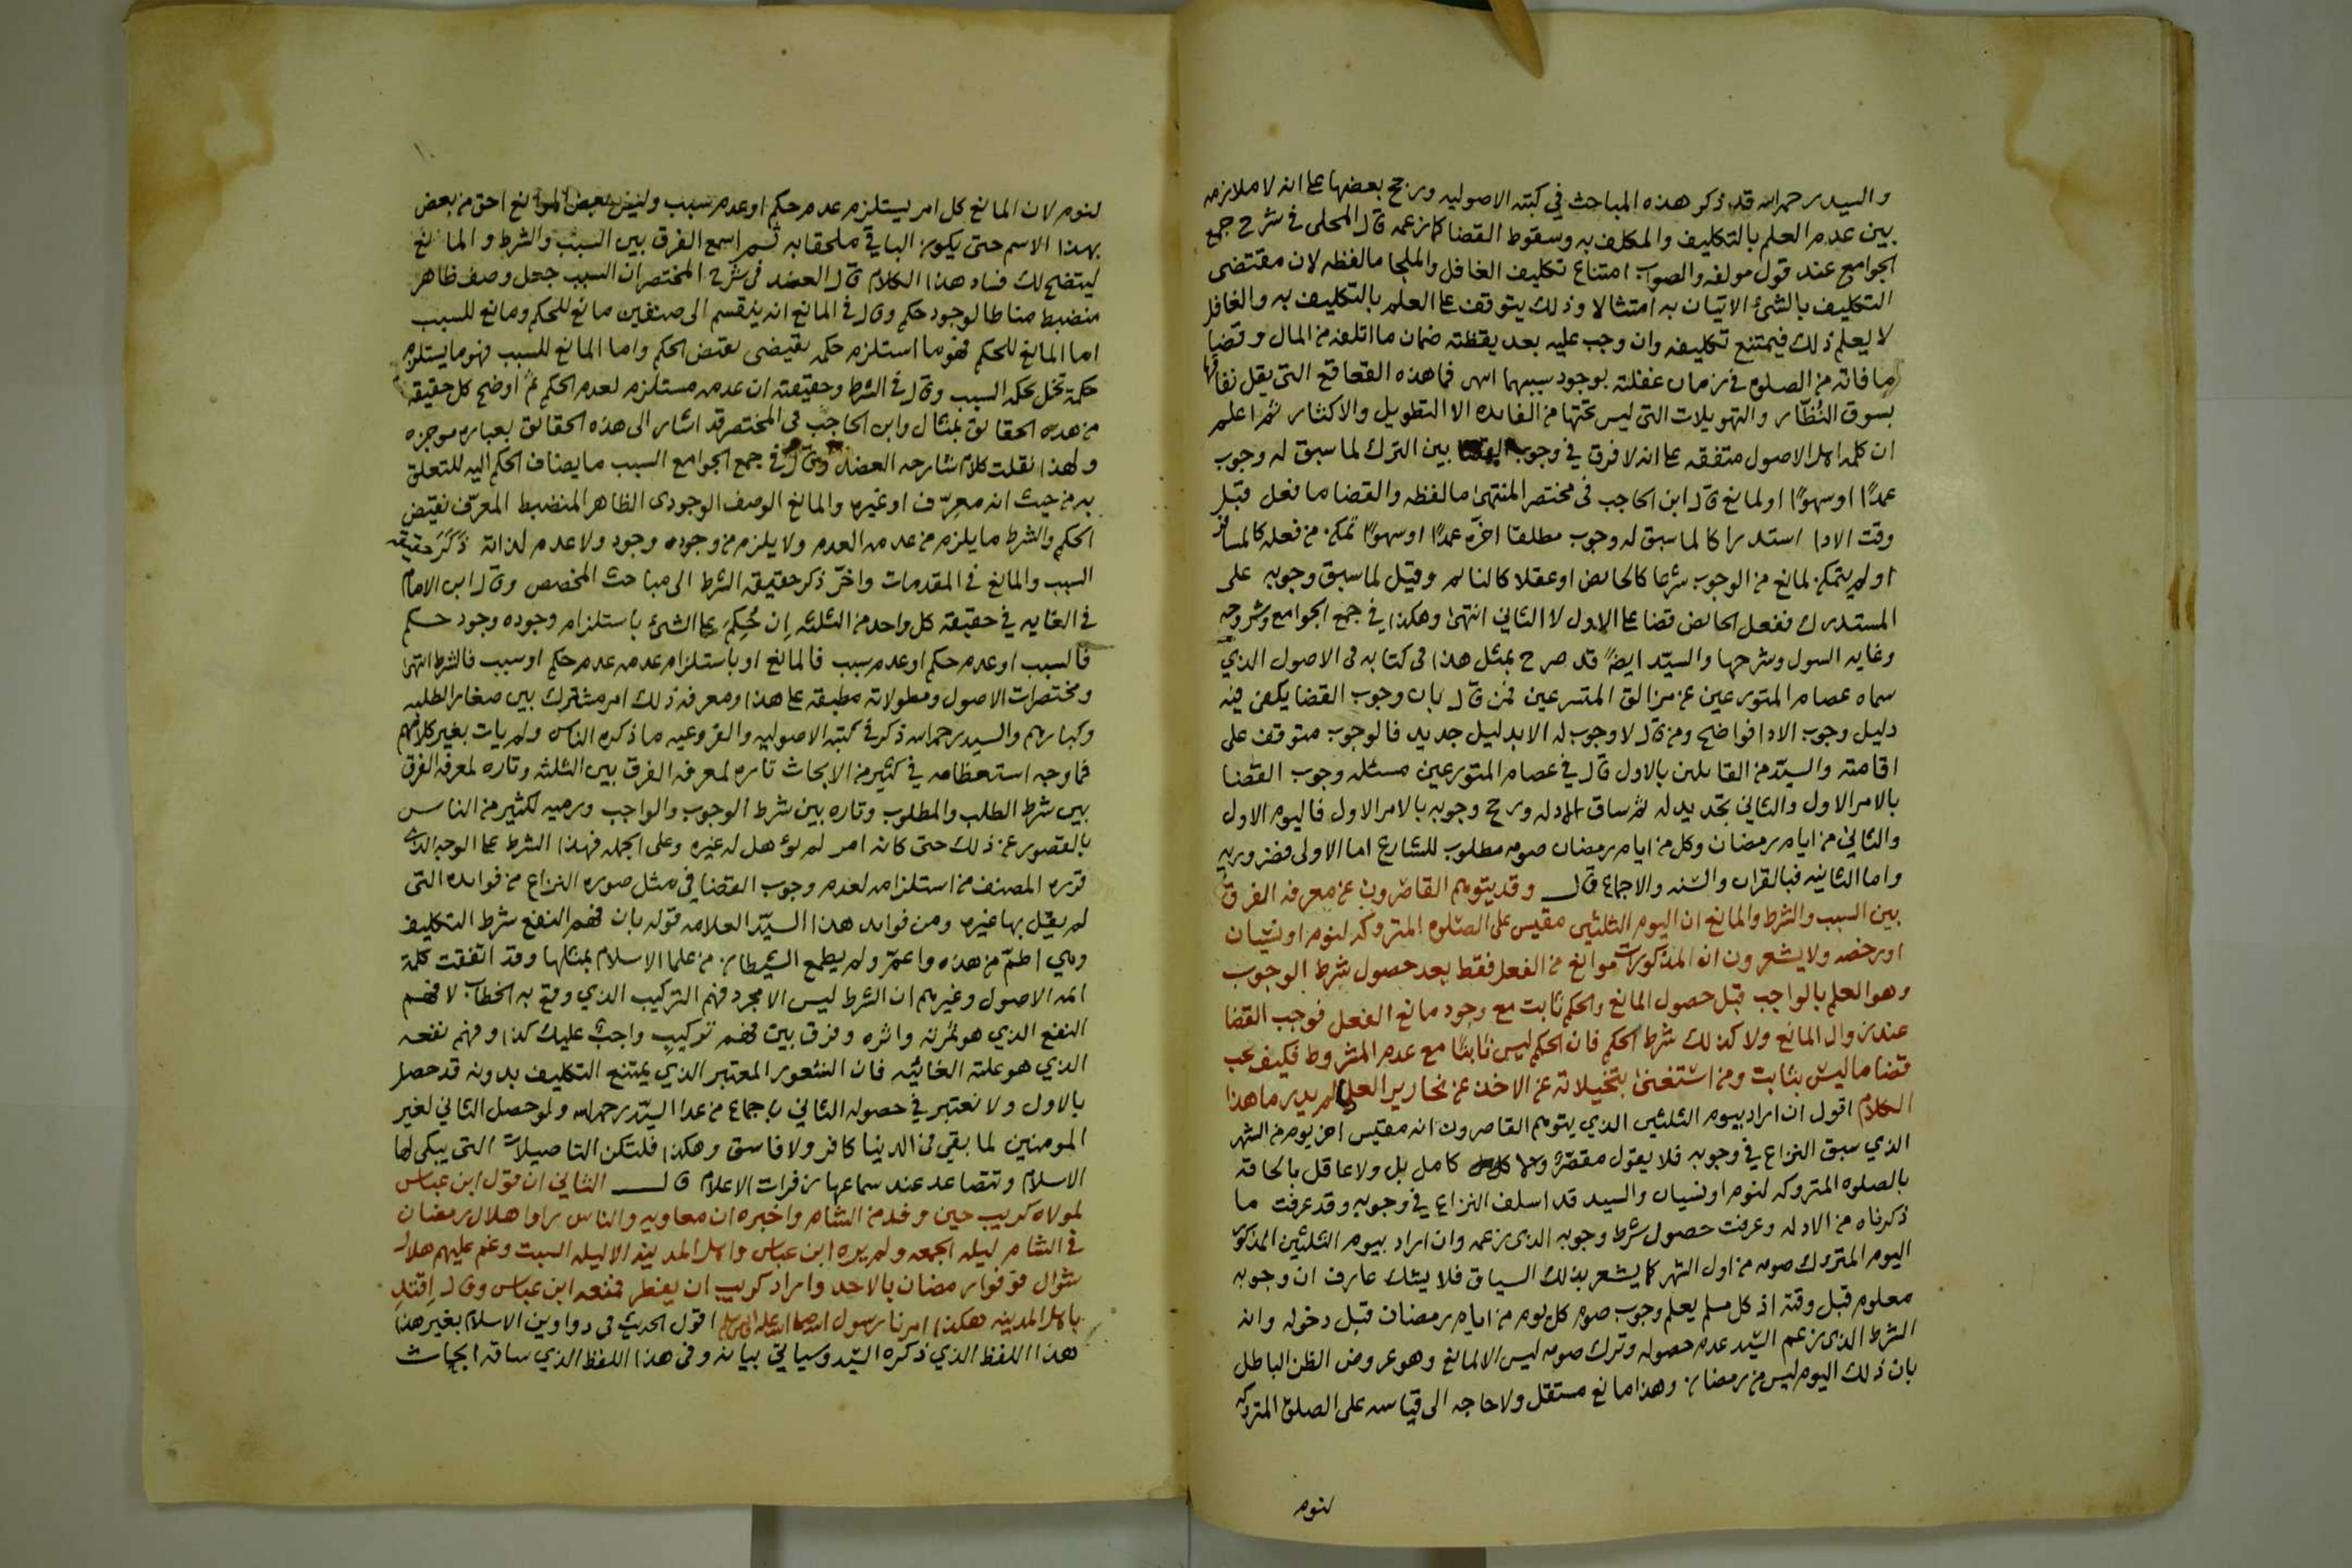 والسيد رحمه الله قد ذكر هذه المباحث في كتبه الاصوليه ورجح بعضها على انه لا ملازمه
بين عدم العلم بالتكليف والمكلف به وسقوط القضا كما زعمه قال المحلى في شرح جمع
الجوامع عند قول مولفه والصواب امتناع تكليف الغافل والملجا ما لفظه لان مقتضى
التكليف بالشئ الاتيان به امتثالا وذلك يتوقف على العلم بالتكليف به والغافل
لا يعلم ذلك فيمتنع تكليفه وان وجب عليه بعد يقظته ضمان ما اتلفه من المال وقضا
ما فاته من الصلوه في زمان غفلته بوجود سببهما انتهى فما هذه القعاقع التي يقل نفاقها
بسوق النُظّار والتهويلات التي ليس تحتها من الفايده الا التطويل والاكثار ثم اعلم
ان كلمه اهل الاصول متفقه على انه لا فرق في وجوب القضا بين الترك لما سبق له وجوب
عمدًا او سهوًا او لمانع قال ابن الحاجب في مختصر المنتهى ما لفظه والقضا ما فعل قبل
وقت الادا استدراكا لما سبق له وجوب مطلقا اخّره عمدًا او سهوًا تمكن من فعله كالمسافر
او لم يتمكن لمانع من الوجوب شرعا كالحايض او عقلا كالنائم وقيل لما سبق وجوبه على
المستدرك ففعل الحائض قضا على الاول لا الثاني انتهى وهكذا في جمع الجوامع وشروحه
وغايه السول وشرحها والسيّد ايضًا قد صرح بمثل هذا في كتابه في الاصول الذي
سماه عصام المتورعين عن مزالق المتسرعين فمن قال بان وجوب القضا يكفي فيه
دليل وجوب الادا فواضح ومن قال لا وجوب له الا بدليل جديد فالوجوب متوقف على
اقامته والسيّد من القايلين بالاول قال في عصام المتورعين مسئله وجوب القضا
بالامر الاول والثاني تجديد له ثم ساق الادله ورجح وجوبه بالامر الاول فاليوم الاول
والثاني من ايام رمضان وكل من ايام رمضان صومه مطلوب للشارع اما الاولى فضروريه
واما الثانيه فبالقران والسنه والاجماع قال وقد يتوهم القاصرون عن معرفه الفرق
بين السبب والشرط والمانع ان اليوم الثلثين مقيس على الصلوه المتروكه لنوم او نسيان
او رخصه ولا يشعرون ان المذكورات موانع من الفعل فقط بعد حصول شرط الوجوب
وهو العلم بالواجب قبل حصول المانع والحكم ثابت مع وجود مانع الفعل فوجب القضا
عند زوال المانع ولا كذلك شرط الحكم فان الحكم ليس ثابتًا مع عدم المشروط فكيف يجب
قضا ما ليس بثابت ومن استغنى بتخيلاته عن الاخذ عن نحارير العلما لم يدر ما هذا
الكلام اقول ان اراد بيوم الثلثين الذي يتوهم القاصرون انه مقيس اخر يوم من الشهر
الذي سبق النزاع في وجوبه فلا يقول مقصّر ولا كامل بل ولا عاقل بالحاقه
بالصلوه المتروكه لنوم او نسيان والسيد قد اسلف النزاع في وجوبه وقد عرفت ما
ذكرناه من الادله وعرفت حصول شرط وجوبه الذي زعمه وان اراد بيوم الثلثين المذكور
اليوم المتروك صومه من اول الشهر كما يشعر بذلك السياق فلا يشك عارف ان وجوبه
معلوم قبل وقته اذ كل مسلم يعلم وجوب صوم كل يوم من ايام رمضان قبل دخوله وانه
الشرط الذي زعم السّيد عدم حصوله وترك صومه ليس الا لمانع وهو عروض الظن الباطل
بان ذلك اليوم ليس من رمضان وهذا مانع مستقل ولا حاجه الى قياسه على الصلوه المتروكه
لنوم
لنوم لان المانع كل امر يستلزم عدم حكم او عدم سبب وليس بعض الموانع احق من بعض
بهذا الاسم حتى يكون الباقي ملحقا به ثم اسمع الفرق بين السبب والشرط والمانع
ليتضح لك فساد هذا الكلام قال العضد في شرح المختصر ان السبب جعل وصف ظاهر
منضبط مناطا لوجود حكم وقال في المانع انه ينقسم الى صنفين مانع للحكم ومانع للسبب
اما المانع للحكم فهو ما استلزم حكمه تقتضي نقيض الحكم واما المانع للسبب فهو ما يستلزم
حكمة تخل بحكمه السبب وقال في الشرط وحقيقته ان عدمه مستلزم لعدم الحكم ثم اوضح كل حقيقه
من هذه الحقائق بمثال وابن الحاجب في المختصر قد اشار الى هذه الحقائق بعباره موجزه
ولهذا نقلت كلام شارحه العضد وقال في جمع الجوامع السبب ما يضاف الحكم اليه للتعلق
به من حيث انه معرّف او غيره والمانع الوصف الوجودي الظاهر المنضبط المعرّف نقيض
الحكم والشرط ما يلزم من عدمه العدم ولا يلزم من وجوده وجود ولا عدم لذاته ذَكَرَ حقيقه
السبب والمانع في المقدمات واخّر ذكر حقيقه الشرط الى مباحث المخصص وقال ابن الامام
في الغايه في حقيقة كل واحد من الثلثه اِن حُكِمَ على الشئ باستلزام وجوده وجود حكم
فالسبب او عدم حكم او عدم سبب فالمانع او باستلزام عدمه عدم حكم او سبب فالشرط انتهى
ومختصرات الاصول ومطولاته مطبقه على هذا ومعرفه ذلك امر مشترك بين صغار الطلبه
وكبارهم والسيد رحمه الله ذكر في كتبه الاصوليه والفروعيه ما ذكره الناس ولم يات بغير كلامهم
فما وجه استعظامه في كثير من الابحاث تاره لمعرفه الفرق بين الثلثه وتاره لمعرفه الفرق
بين شرط الطلب والمطلوب وتاره بين شرط الوجوب والواجب ورميه لكثير من الناس
بالقصور عن ذلك حتى كانه امر لم يوهل له غيره وعلى الجمله فهذا الشرط على الوجه الذي
قرره المصنف من استلزامه لعدم وجوب القضا في مثل صوره النزاع من فوايده التي
لم يقل بها غيره ومن فوايد هذا السيّد العلامه قوله بان فهم النفع شرط التكليف
وهي اطمّ من هذه واعمّ ولم يطمع الشيطان من علما الاسلام بمثلها وقد اتفقت كلمة
ائمه الاصول وغيرهم ان الشرط ليس الا مجرد فهم التركيب الذي وقع به الخطاب لا فهم
النفع الذي هو ثمرته واثره وفرق بين فهم تركيب واجب عليك كذا وفهم نفعه
الذي هو علته الغائيّه فان الشعور المعتبر الذي يمتنع التكليف بدونه قد حصل
بالاول ولا نعتبر في حصوله الثاني باجماع من عدا السيّد رحمه الله ولو حصل الثاني لغير
المومنين لما بقي في الدنيا كافر ولا فاسق وهكذا فلتكن التاصيلات التي يبكي لها
الاسلام وتتصاعد عند سماعها زفرات الاعلام قال الثاني ان قول ابن عباس
لمولاه كريب حين وفد من الشام واخبره ان معاويه والناس راوا هلال رمضان
في الشام ليله الجمعه ولم يره ابن عباس واهل المدينه الا ليله السبت وغم عليهم هلال
شوال فوفوا رمضان بالاحد واراد كريب ان يفطر فمنعه ابن عباس وقال اِقتدِ
باهل المدينه هكذا امرنا رسول الله صلى الله عليه وسلم اقول الحديث في دواوين الاسلام بغير هذا
هذا اللفظ الذي ذكره السّيد وسياتي بيانه وفي هذا اللفظ الذي ساقه ابحاث